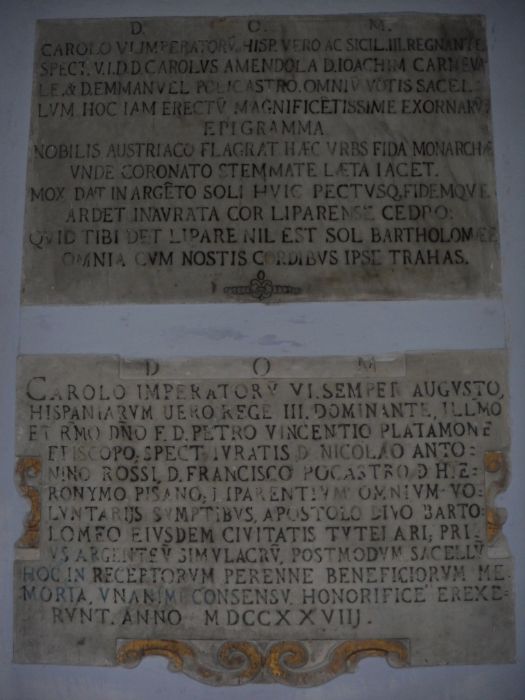 D. O. M.
CAROLO VI.IMPERATORŪ, HISP. VERO AC SICIL. III. REGNANTE
SPECT. V. I. D. D. CAROLVS AMENDOLA D. IOACHIM CARNEVA
LE, & D. EMMANVEL POLICASTRO. OMNIŪ VOTIS SACEL
LVM HOC IAM ERECTŪ MAGNIFICĒTISSIME EXORNARŪT
EPIGRAMMA
NOBILIS AUSTRIACO FLAGRAT HÆC VRBS FIDA MONARCHÆ
VNDE CORONATO STEMMATE LÆTA IACET.
MOX DAT IN ARGĒTO SOLI HVIC PECTVSQ, FIDEMQVE
ARDET INAVRATA COR LIPARENSE CEDRO:
QVID TIBI DET LIPARE NIL EST SOL BARTHOLOMÆE
OMNIA CVM NOSTIS CORDIBVS IPSE TRAHAS.
D O M
CAROLO IMPERATORŪ VI. SEMPER AUGVSTO,
HISPANIARVM UERO REGE III. DOMINANTE, ILLMO
ET RMO DÑO F. D. PETRO VINCENTIO PLATAMONE
EPISCOPO; SPECT. IVRATIS D. NICOLAO ANTO
NINO ROSSI, D. FRANCISCO POCASTRO, D. HIE
RONYMO PISANO; LIPARENTIVM OMNIVM VO
LVNTARIJS SVMPTIBVS, APOSTOLO DIVO BARTO
LOMEO EIUSDEM CIVITATIS TVTELARI; PRI
VS ARGENTEŪ SIMVLACRŪ, POSTMODVM SACELLŪ
HOC IN RECEPTORVM PERENNE BENEFICIORVM ME
MORIA, VNANIMI CONSENSV, HONORIFICE EREXE
RVNT. ANNO MDCCXXVIIJ.